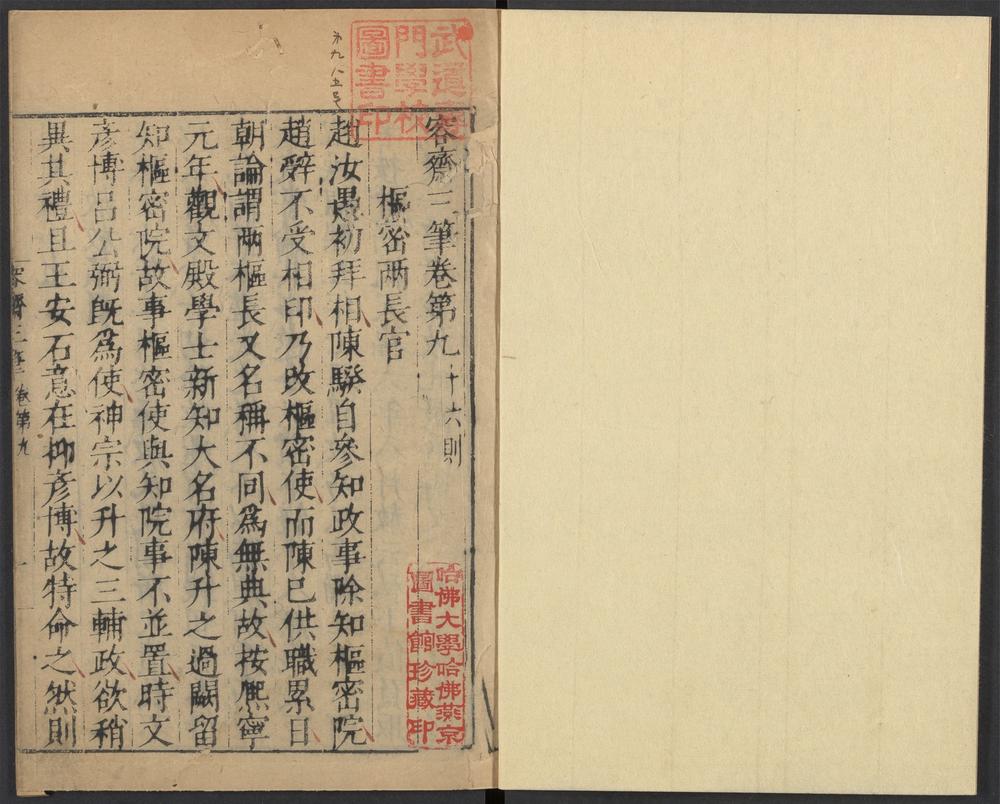 容齋三筆卷第九十六則
樞密兩長官
趙汝愚初拜相陳騤自參知政事除知樞密院
趙辭不受相印乃改樞密使而陳已供職累日
朝論謂兩樞長又名稱不同為無典故按熈寧
元年觀文殿學士新知大名府陳升之過闕留
知樞密院故事樞密使與知院事不並置時文
彥博呂公弼旣為使神宗以升之三輔政欲稍
異其禮且王安石意在抑彥博故特命之然則
容齋三筆 卷第九 一
武道專
門學校
圖書印
哈佛大學哈佛燕京
圖書館珍藏印